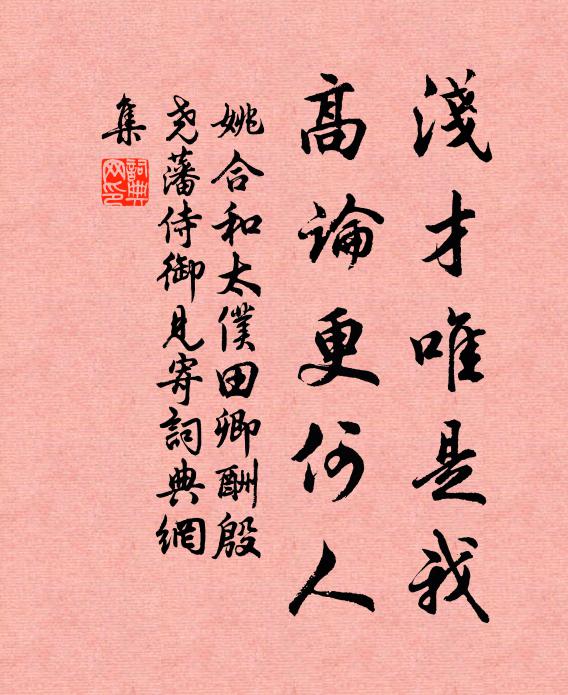 淺才唯是我
高論更何人
姚合和太僕田卿酬殷
堯藩侍御見寄詞典網
集
詞典網印